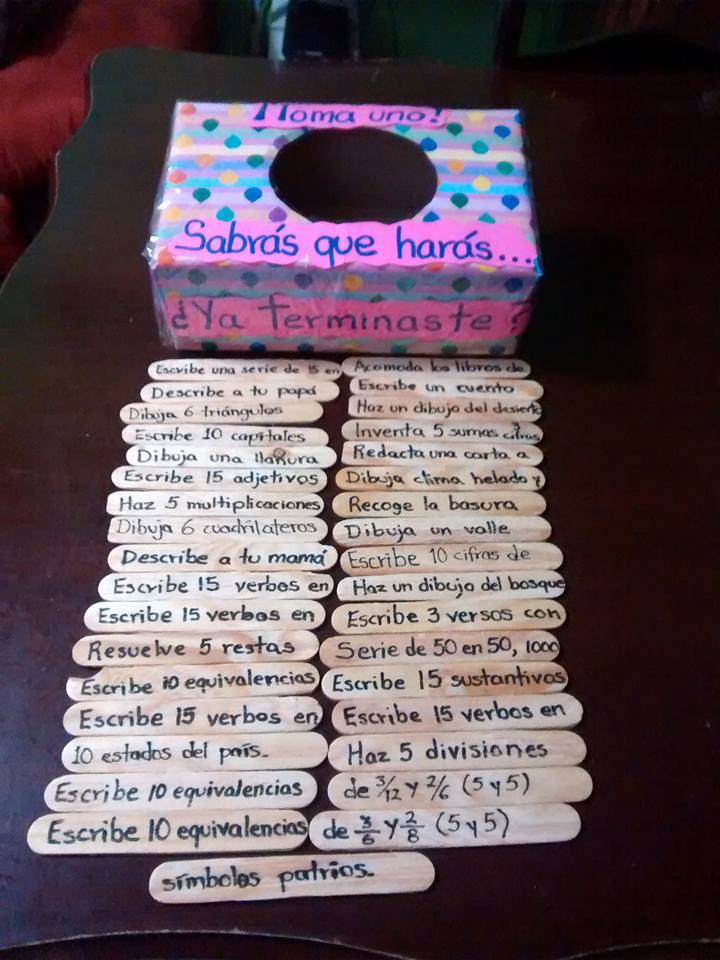 ¡Toma uno!
Sabrás que harás...
¿Ya terminaste?
Escribe una serie de 15 en
Describe a tu papá
Dibuja 6 triángulos
Escribe 10 capitales
Dibuja una llanura
Escribe 15 adjetivos
Haz 5 multiplicaciones
Dibuja 6 cuadriláteros
Describe a tu mamá
Escribe 15 verbos en
Escribe 15 verbos en
Resuelve 5 restas
Escribe 10 equivalencias
Escribe 15 verbos en
10 estados del país.
Escribe 10 equivalencias
Escribe 10 equivalencias
Acomoda los libros de
Escribe un cuento
Haz un dibujo del desierto
Inventa 5 sumas 3 cifras
Redacta una carta a
Dibuja clima helado y
Recoge la basura
Dibuja un valle
Escribe 10 cifras de
Haz un dibujo del bosque
Escribe 3 versos con
Serie de 50 en 50, 1000
Escribe 15 sustantivos
Escribe 15 verbos en
Haz 5 divisiones
de 3/12 y 2/6 (5 y 5)
de 3/6 y 2/8 (5 y 5)
símbolos patrios.